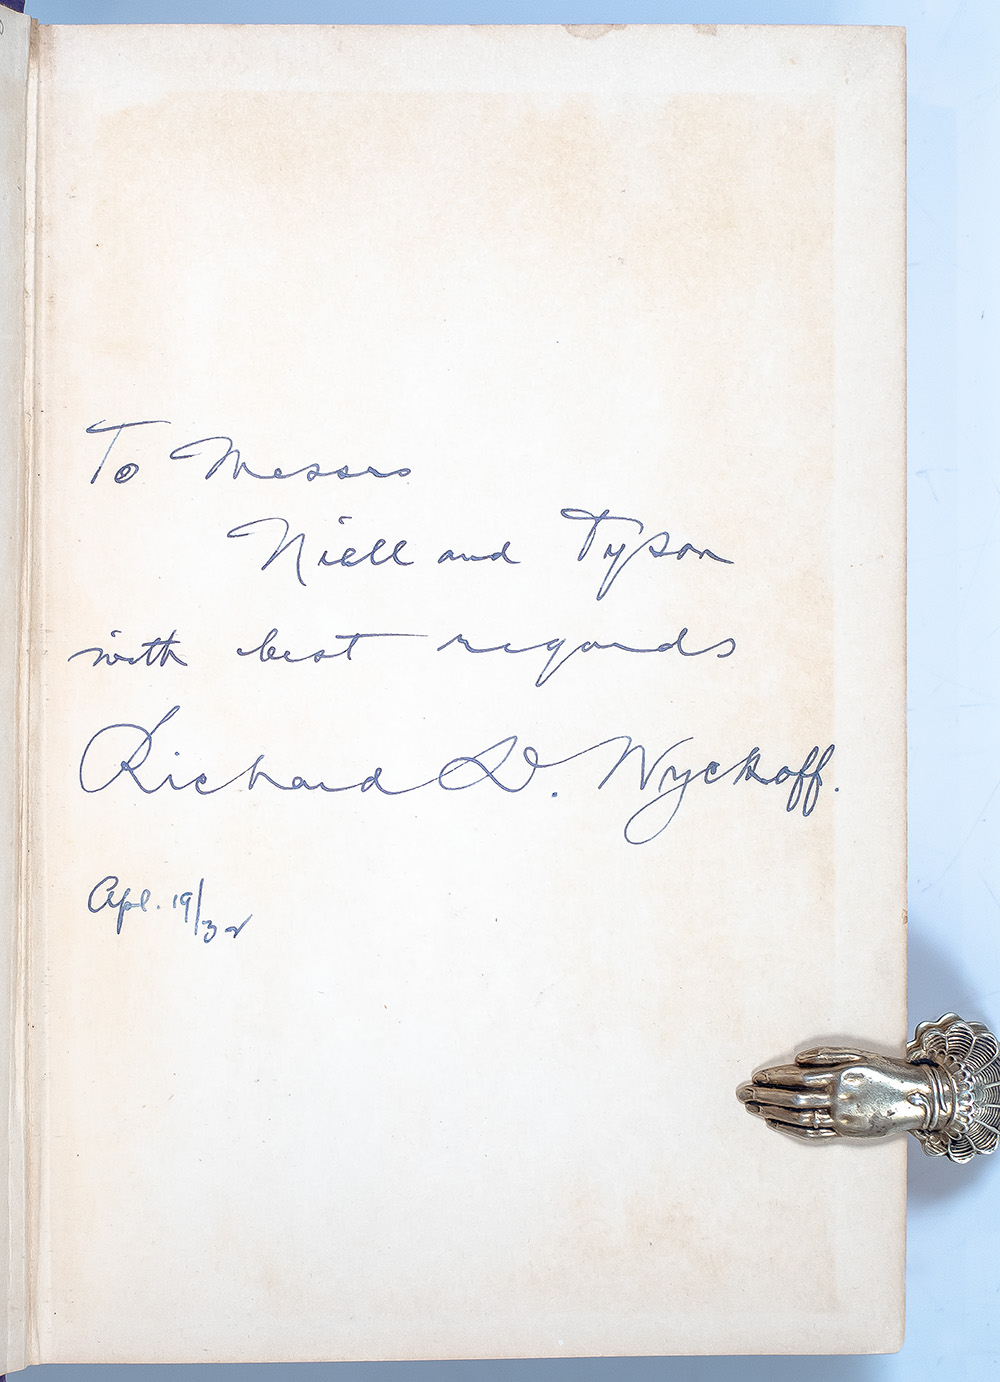 To Messrs
Niell and Tyson
with best regards
Richard D. Wyckoff.
Apl. 19/32